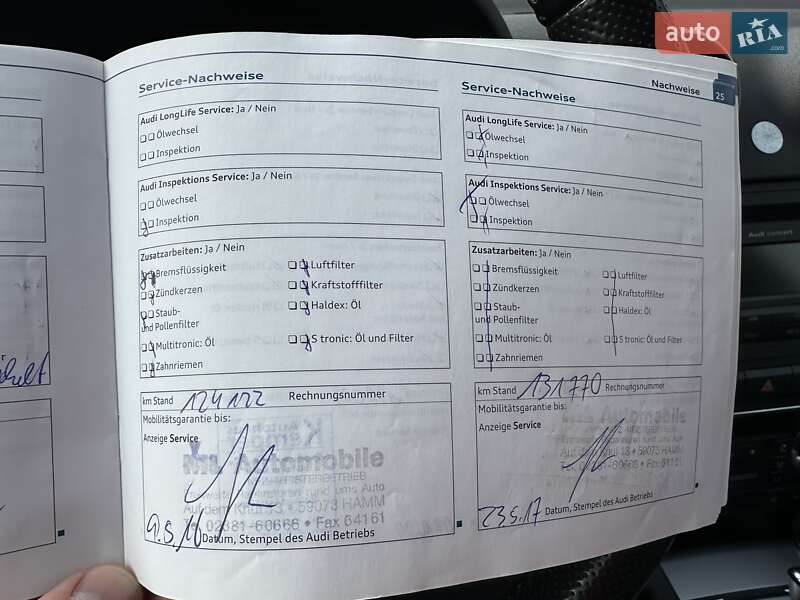 auto RIA .com
Nachweise 25
Service-Nachweise
Audi LongLife Service: Ja / Nein
Ölwechsel
Inspektion
Audi Inspektions Service: Ja / Nein
Ölwechsel
Inspektion
Zusatzarbeiten: Ja / Nein
Bremsflüssigkeit
Zündkerzen
Staub-
und Pollenfilter
Multitronic: Öl
Zahnriemen
Luftfilter
Kraftstofffilter
Haldex: Öl
S tronic: Öl und Filter
km Stand 124122 Rechnungsnummer
Mobilitätsgarantie bis:
Anzeige Service
Automobile
MEISTERBETRIEB
59073 HAMM
Tel. 02381-60666 • Fax 64161
9.5.16 Datum, Stempel des Audi Betriebs
Service-Nachweise
Audi LongLife Service: Ja / Nein
Ölwechsel
Inspektion
Audi Inspektions Service: Ja / Nein
Ölwechsel
Inspektion
Zusatzarbeiten: Ja / Nein
Bremsflüssigkeit
Zündkerzen
Staub-
und Pollenfilter
Multitronic: Öl
Zahnriemen
Luftfilter
Kraftstofffilter
Haldex: Öl
S tronic: Öl und Filter
km Stand 131770 Rechnungsnummer
Mobilitätsgarantie bis:
Anzeige Service
Automobile
59073 HAMM
Fax 64161
23.5.17 Datum, Stempel des Audi Betriebs
Audi concert